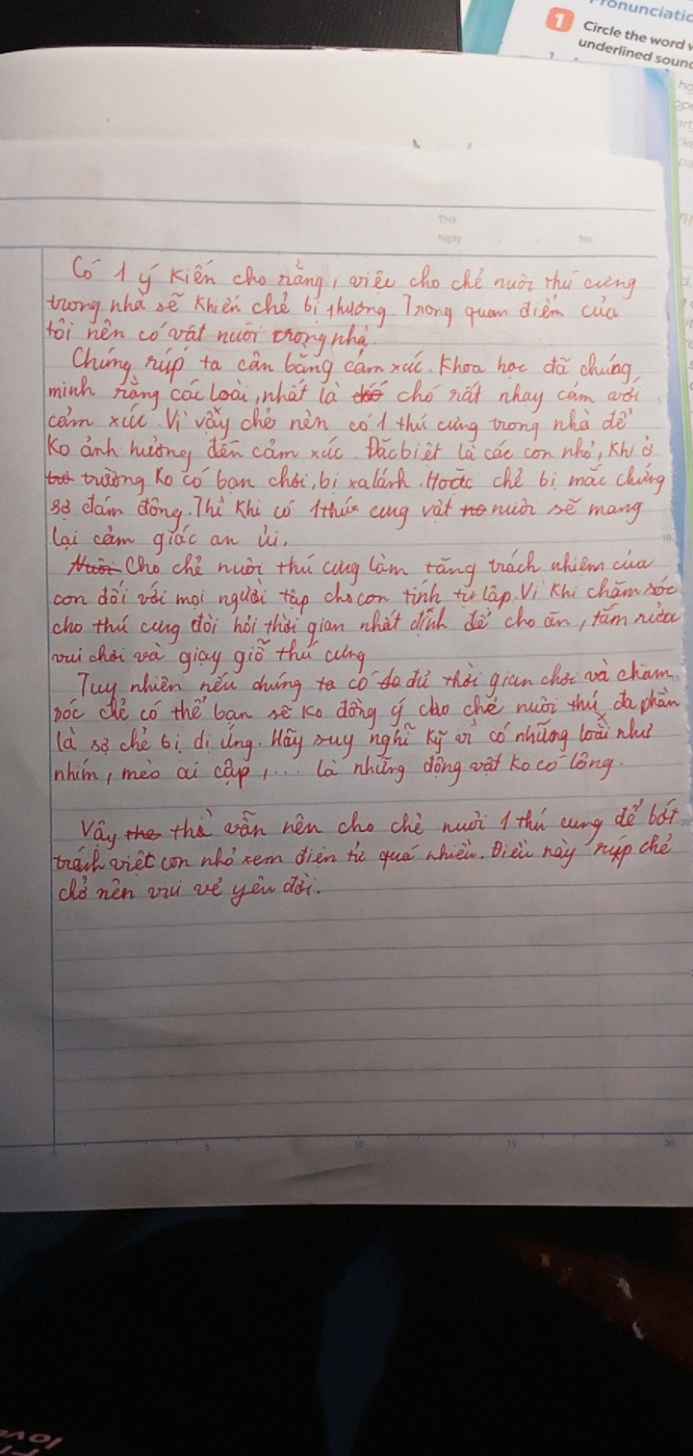 Pronunciatio
1 Circle the word
underlined soun
Thứ
Ngày No
Có 1 ý kiến cho rằng, việc cho chẻ nuôi thú cưng
trong nhà sẽ khiến chẻ bị thương. Trong quan điểm của
tôi nên có vât nuôi trong nhà.
Chúng rúp ta cân bằng cảm xúc. Khoa học đã chứng
minh rằng các loài, nhất là chó rất nhạy cảm với
cảm xúc. Vì vậy chẻ nên có 1 thú cưng trong nhà để
ko ảnh hưởng đến cảm xúc. Đặc biệt là các con nhỏ, khi ở
trường ko có bạn chơi, bị xa lánh. Hoặc chẻ bị mắc chứng
sợ đám đông. Thì khi có 1 thú cưng vật nuôi sẽ mang
lại cảm giác an ủi.
Cho chẻ nuôi thú cưng làm tăng trách nhiệm của
con đối với mọi người tập cho con tính tự lập. Vì khi chăm sóc
cho thú cưng đòi hỏi thời gian nhất định để cho ăn, tắm rửa
vui chơi và giạy giỗ thú cưng
Tuy nhiên nếu chúng ta có đủ thời gian chơi và chăm
sóc chẻ có thể bạn sẽ ko đồng ý cho chẻ nuôi thú, đa phần
là sợ chẻ bị dị ứng. Hãy suy nghĩ kỹ vì có những loài như
nhím, mèo ai cập,... là những động vật ko có lông.
Vậy thì vẫn nên cho chẻ nuôi 1 thú cưng để bớt
trách việc con nhỏ xem điện tử quá nhiều. Điều này rúp chẻ
chở nên vui vẻ yêu đời.
5 10 15 20